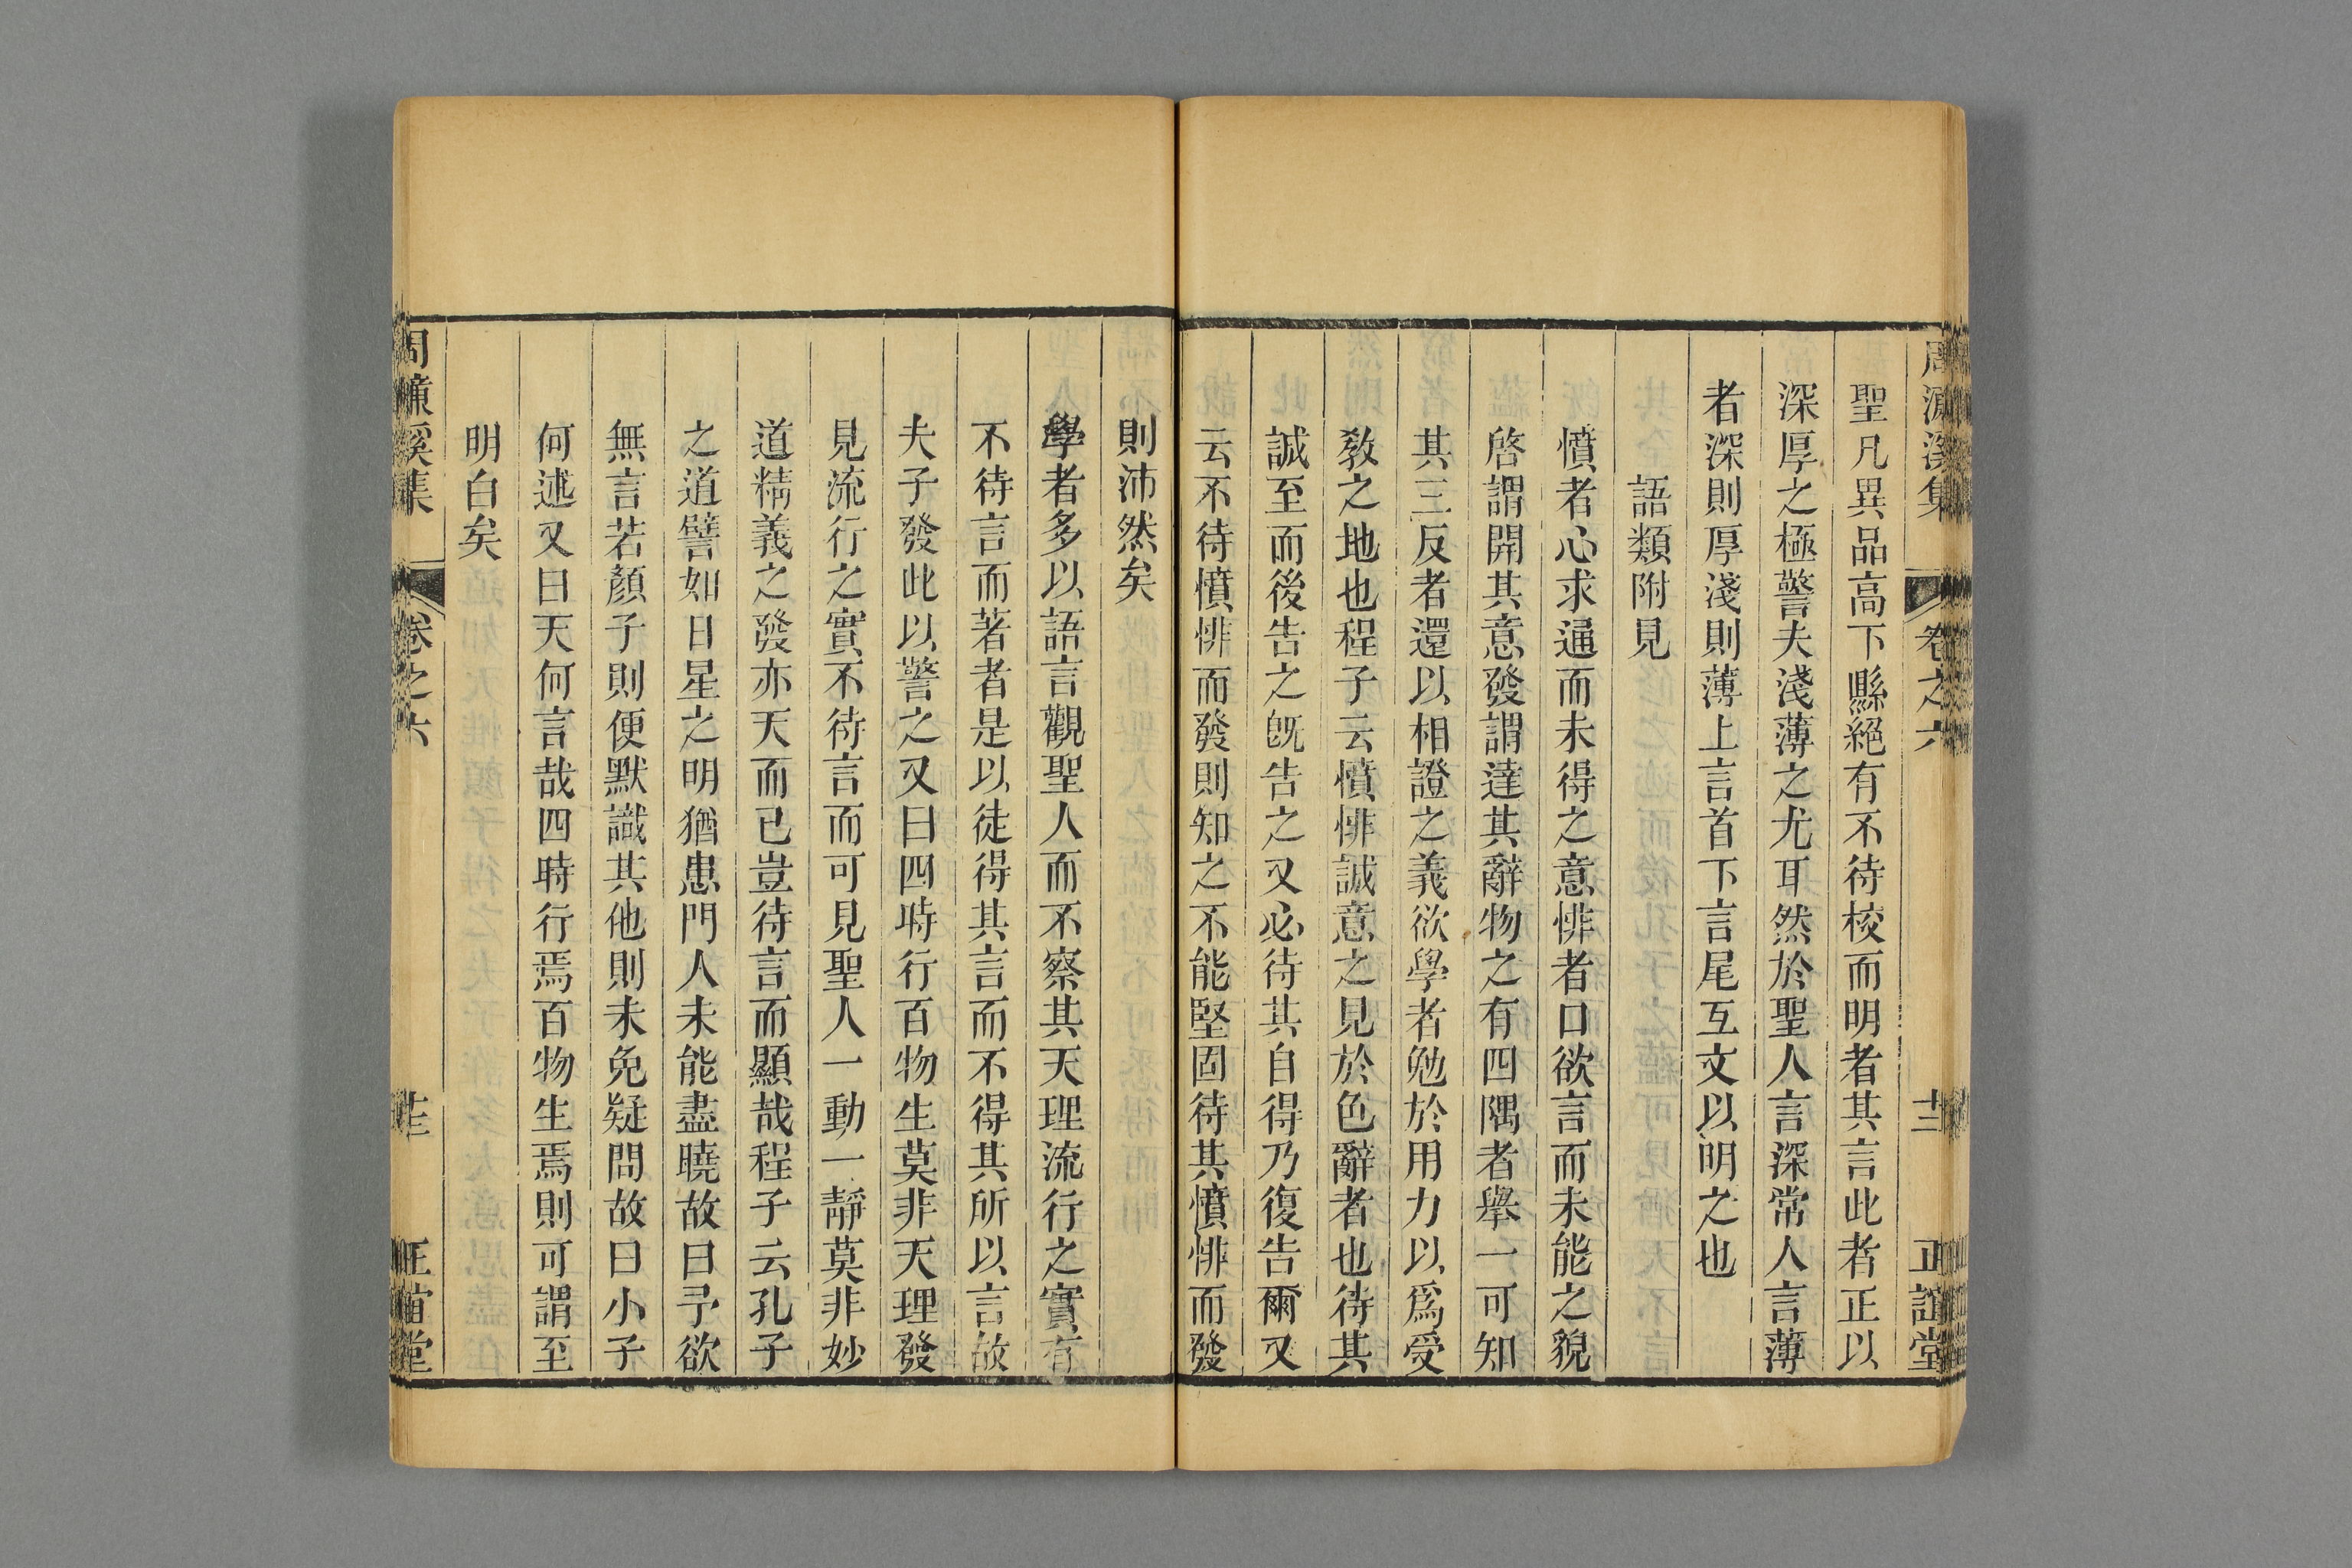 周濂溪集 卷之六 正誼堂
聖凡異品高下縣絕有不待校而明者其言此者正以
深厚之極警夫淺薄之尤耳然於聖人言深常人言薄
者深則厚淺則薄上言首下言尾互文以明之也
語類附見
憤者心求通而未得之意悱者口欲言而未能之貌
啓謂開其意發謂達其辭物之有四隅者舉一可知
其三反者還以相證之義欲學者勉於用力以爲受
敎之地也程子云憤悱誠意之見於色辭者也待其
誠至而後告之旣告之又必待其自得乃復告爾又
云不待憤悱而發則知之不能堅固待其憤悱而發
則沛然矣
學者多以語言觀聖人而不察其天理流行之實有
不待言而著者是以徒得其言而不得其所以言故
夫子發此以警之又曰四時行百物生莫非天理發
見流行之實不待言而可見聖人一動一靜莫非妙
道精義之發亦天而已豈待言而顯哉程子云孔子
之道譬如日星之明猶患門人未能盡曉故曰予欲
無言若顏子則便默識其他則未免疑問故曰小子
何述又曰天何言哉四時行焉百物生焉則可謂至
明白矣
周濂溪集 卷之六 正誼堂